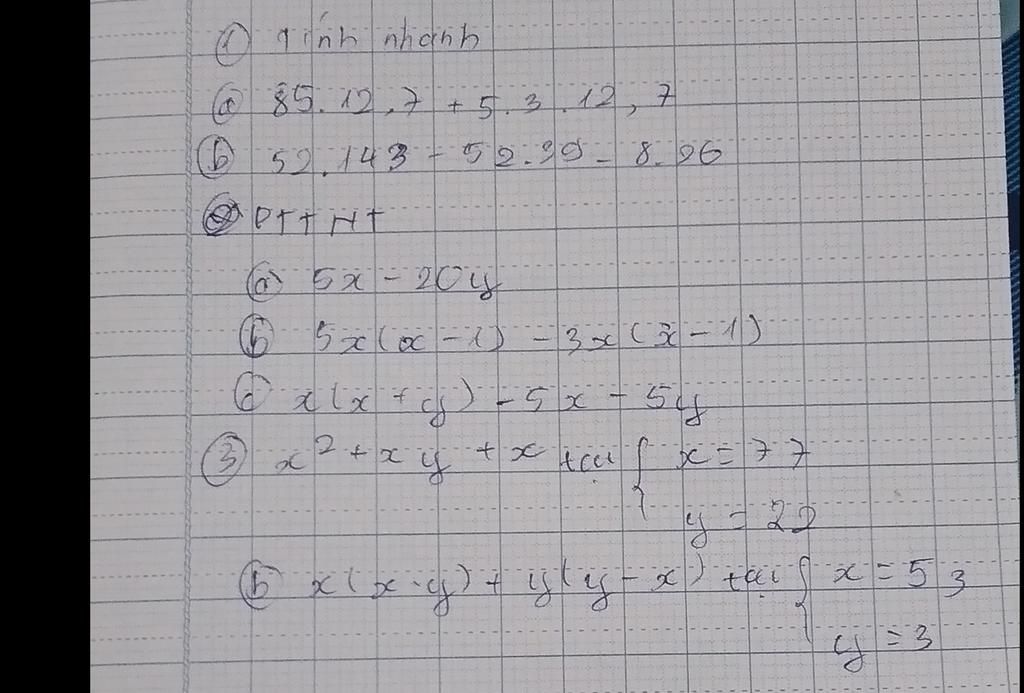 ① Tính nhanh
ⓐ 85.12,7 + 5.3.12,7
ⓑ 52.143 - 52.39 - 8.26
② PTTNT
ⓐ 5x - 20y
ⓑ 5x(x - 1) - 3x(x - 1)
ⓒ x(x + y) - 5x - 5y
③ x² + xy + x tại { x = 77
y = 22
ⓑ x(x - y) + y(y - x) tại { x = 53
y = 3